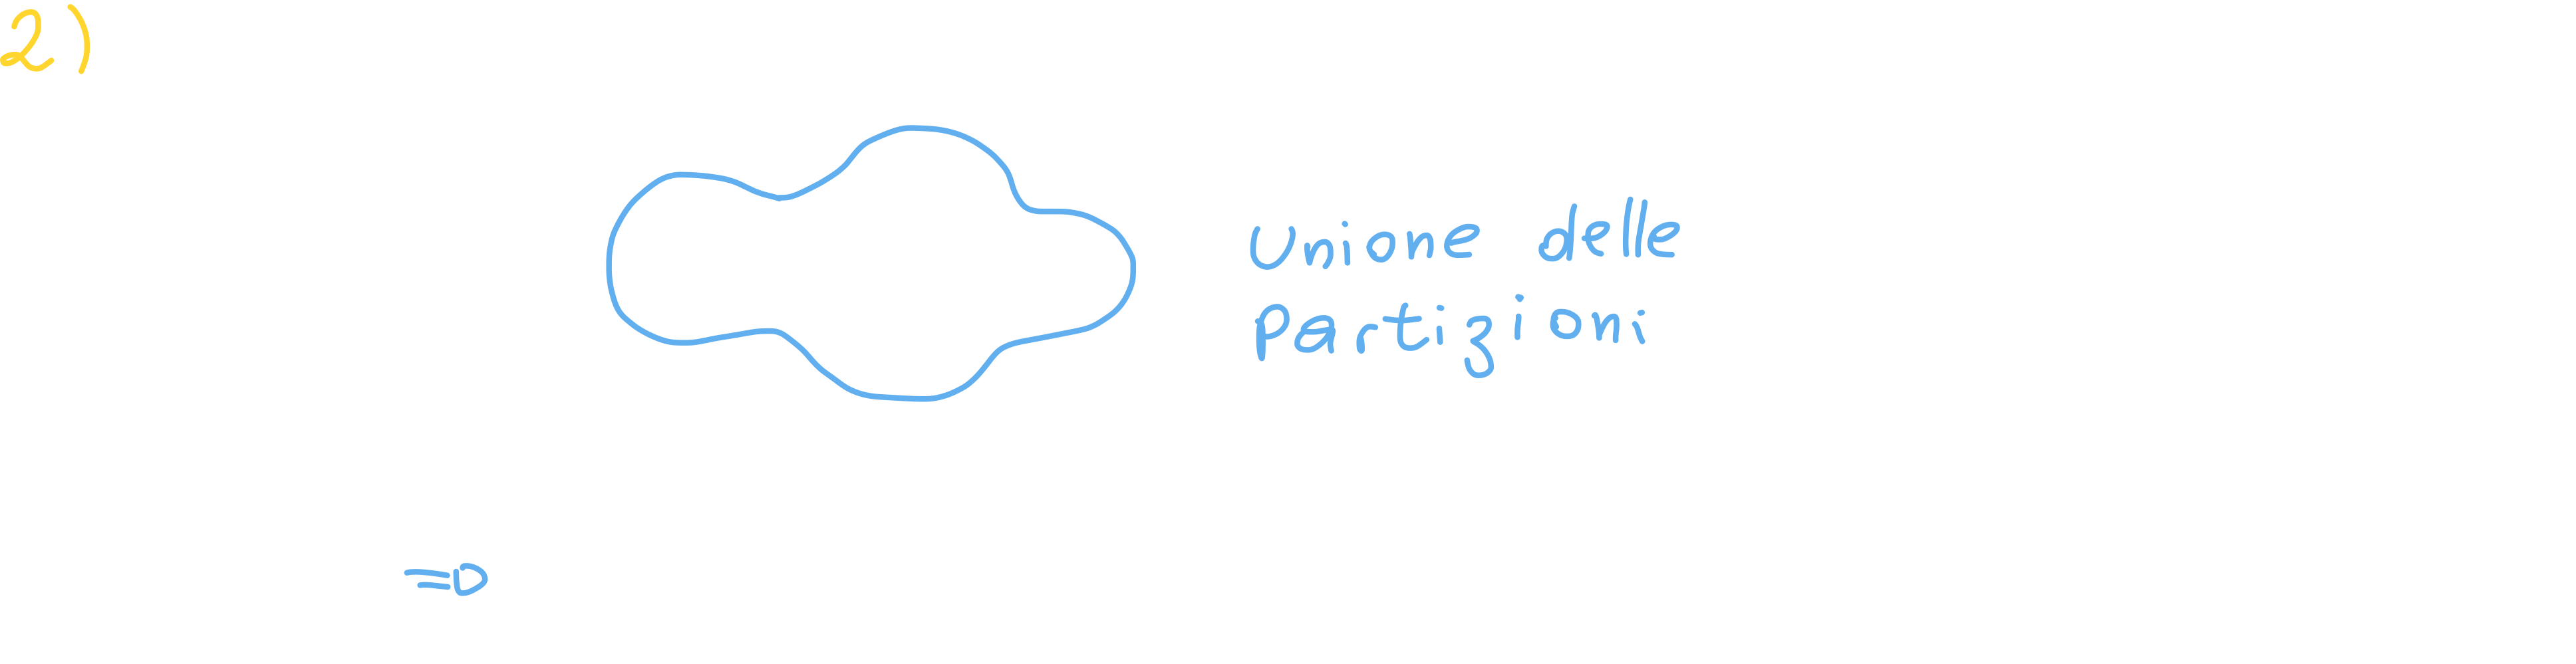 2)
Unione delle
Partizioni
=D